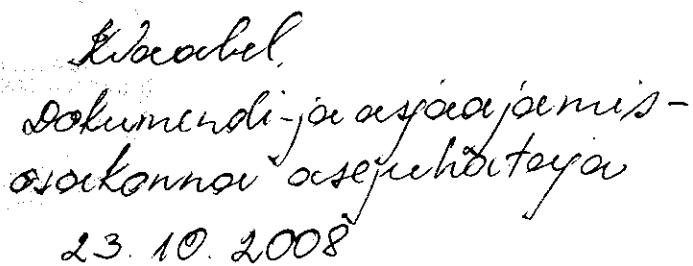 KVaabel
Dokumendi-ja asjaajamis-
osakonna asejuhataja
23.10.2008